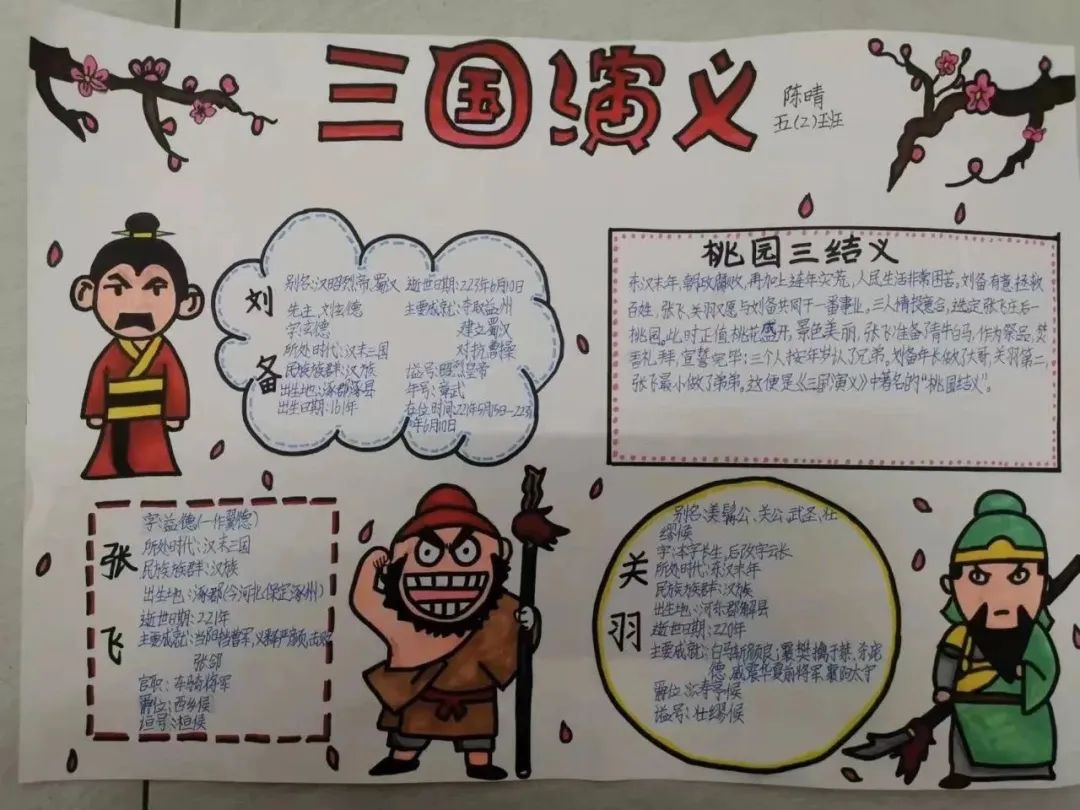 三国演义
陈晴
五(2)班
刘备
别名:汉昭烈帝、蜀汉
先主、刘玄德
字:玄德
所处时代:汉末三国
民族族群:汉族
出生地:涿郡涿县
出生日期:161年
逝世日期:223年6月10日
主要成就:夺取益州
建立蜀汉
对抗曹操
谥号:昭烈皇帝
年号:章武
在位时间:221年5月15日—223
年6月10日
桃园三结义
东汉末年,朝政腐败,再加上连年灾荒,人民生活非常困苦。刘备有意拯救
百姓,张飞、关羽又愿与刘备共同干一番事业,三人情投意合,选定张飞庄后一
桃园。此时正值桃花盛开,景色美丽,张飞准备了青牛白马,作为祭品,焚
香礼拜,宣誓完毕;三个人按年岁认了兄弟。刘备年长做了大哥,关羽第二,
张飞最小做了弟弟。这便是《三国演义》中著名的“桃园结义”。
张飞
字:益德(一作翼德)
所处时代:汉末三国
民族族群:汉族
出生地:涿郡(今河北保定涿州)
逝世日期:221年
主要成就:当阳挡曹军,义释严颜,击败
张郃
官职:车骑将军
爵位:西乡侯
桓侯
关羽
别名:美髯公、关公、武圣、壮
缪候
字:本字长生,后改字云长
所处时代:东汉末年
民族族群:汉族
出生地:河东郡解县
逝世日期:220年
主要成就:白马斩颜良;襄樊擒于禁、杀庞
德,威震华夏前将军、襄阳太守
爵位:汉寿亭候
谥号:壮缪候